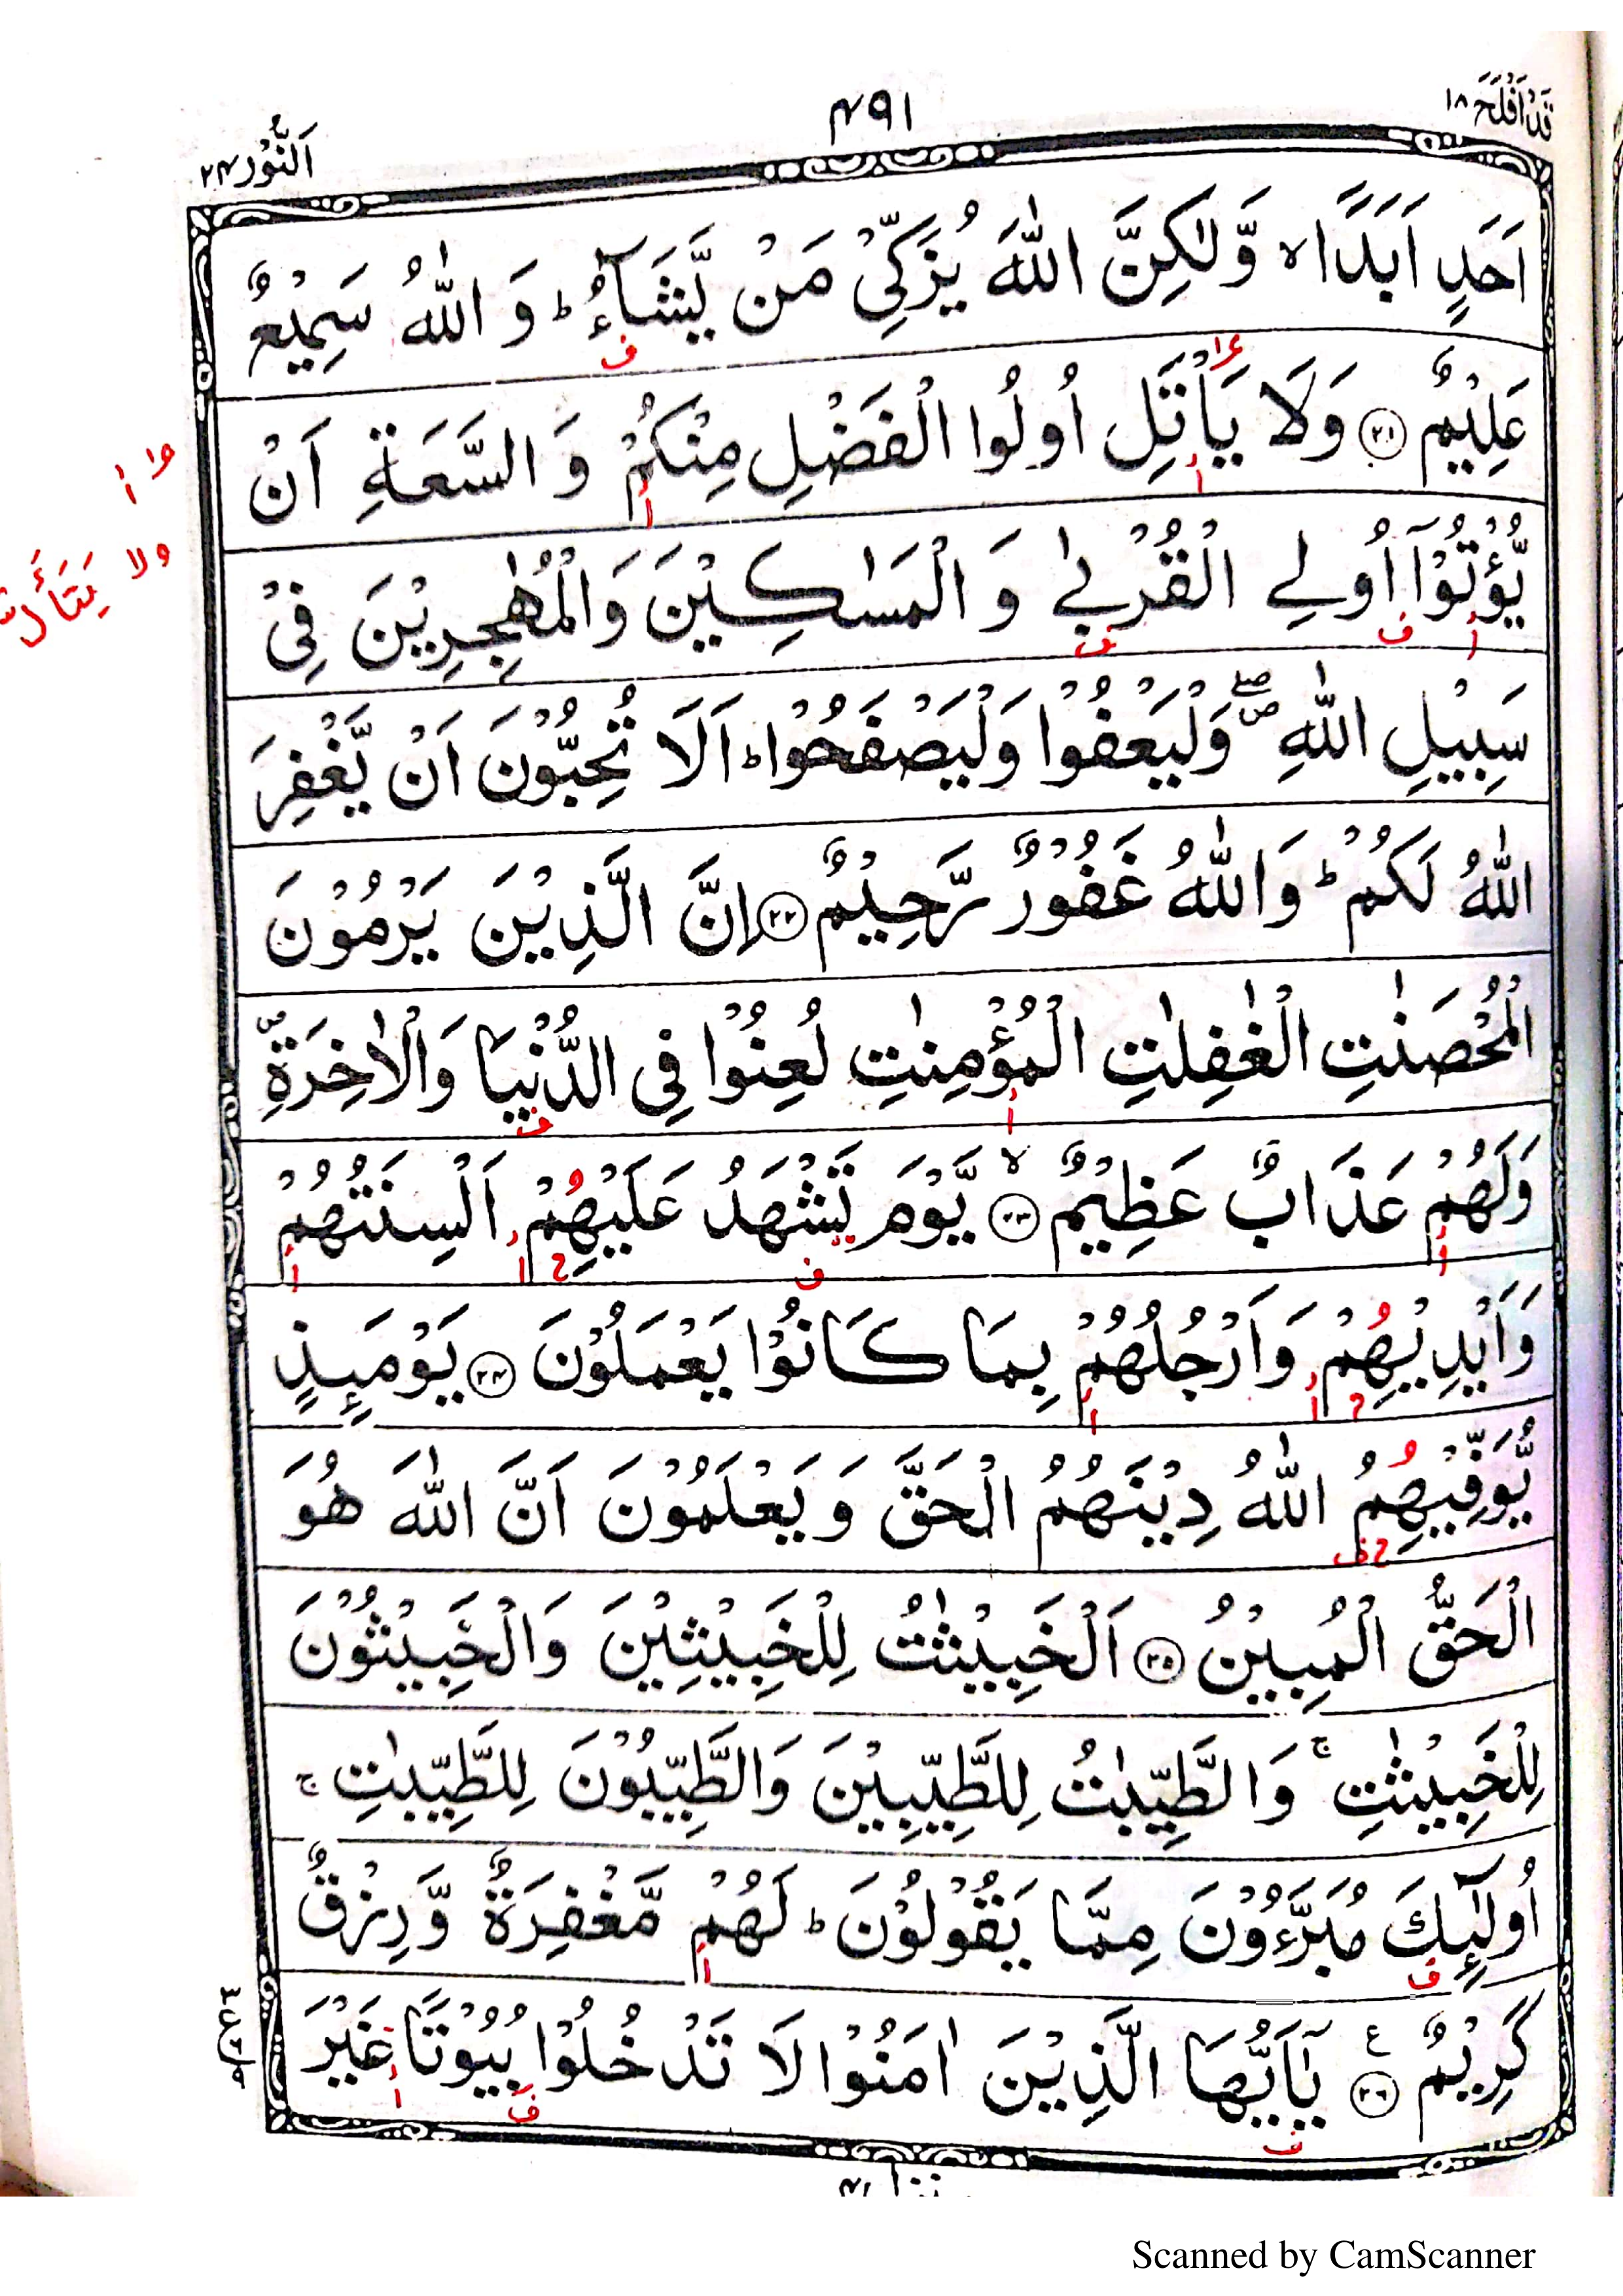 قَدْ اَفْلَحَ ١٨
۴۹۱
اَلنُّوْر ۲۴
اَحَدٍ اَبَدًا ۙ وَّلٰكِنَّ اللّٰهَ يُزَكِّىْ مَنْ يَّشَآءُ ؕ وَ اللّٰهُ سَمِيْعٌ
عَلِيْمٌ ﴿۲۱﴾ وَلَا يَاْتَلِ اُولُوا الْفَضْلِ مِنْكُمْ وَ السَّعَةِ اَنْ
يُّؤْتُوْۤا اُولِى الْقُرْبٰى وَ الْمَسٰكِيْنَ وَالْمُهٰجِرِيْنَ فِىْ
سَبِيْلِ اللّٰهِ ۖ وَلْيَعْفُوْا وَلْيَصْفَحُوْا ؕ اَلَا تُحِبُّوْنَ اَنْ يَّغْفِرَ
اللّٰهُ لَكُمْ ؕ وَاللّٰهُ غَفُوْرٌ رَّحِيْمٌ ﴿۲۲﴾ اِنَّ الَّذِيْنَ يَرْمُوْنَ
الْمُحْصَنٰتِ الْغٰفِلٰتِ الْمُؤْمِنٰتِ لُعِنُوْا فِى الدُّنْيَا وَالْاٰخِرَةِ ۪
وَلَهُمْ عَذَابٌ عَظِيْمٌ ۙ ﴿۲۳﴾ يَّوْمَ تَشْهَدُ عَلَيْهِمْ اَلْسِنَتُهُمْ
وَاَيْدِيْهِمْ وَاَرْجُلُهُمْ بِمَا كَانُوْا يَعْمَلُوْنَ ﴿۲۴﴾ يَوْمَئِذٍ
يُّوَفِّيْهِمُ اللّٰهُ دِيْنَهُمُ الْحَقَّ وَ يَعْلَمُوْنَ اَنَّ اللّٰهَ هُوَ
الْحَقُّ الْمُبِيْنُ ﴿۲۵﴾ اَلْخَبِيْثٰتُ لِلْخَبِيْثِيْنَ وَالْخَبِيْثُوْنَ
لِلْخَبِيْثٰتِ ۚ وَالطَّيِّبٰتُ لِلطَّيِّبِيْنَ وَالطَّيِّبُوْنَ لِلطَّيِّبٰتِ ۚ
اُولٰٓئِكَ مُبَرَّءُوْنَ مِمَّا يَقُوْلُوْنَ ؕ لَهُمْ مَّغْفِرَةٌ وَّ رِزْقٌ
كَرِيْمٌ ﴿۲۶﴾ ع يٰۤاَيُّهَا الَّذِيْنَ اٰمَنُوْا لَا تَدْخُلُوْا بُيُوْتًا غَيْرَ
ولا يَتَأَلَّ
Scanned by CamScanner